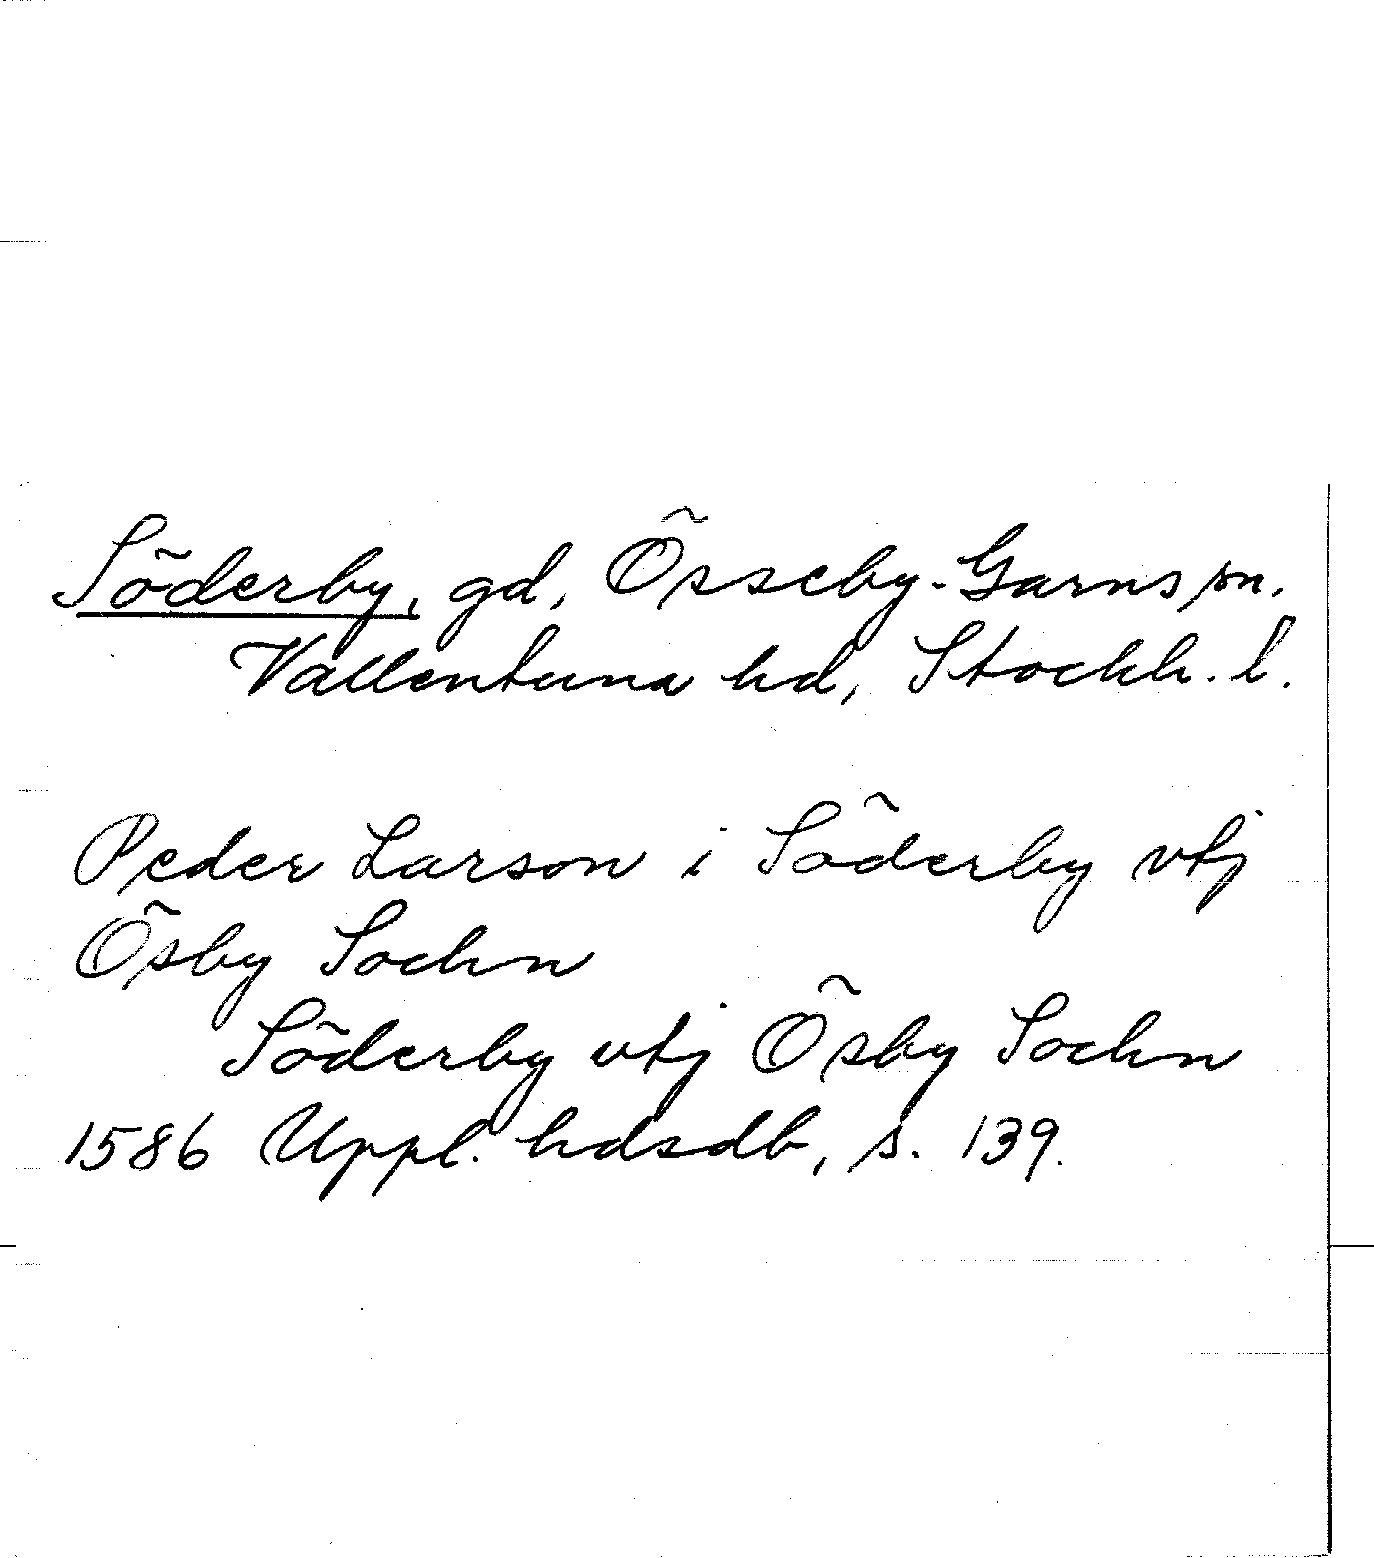 Söderby, gd, Össeby-Garns sn.
Vallentuna hd, Stockh. l.
Peder Larson i Söderby vtj
Ösby Sochn
Söderby vtj Ösby Sochn
1586 Uppl. hdsdb, s. 139.